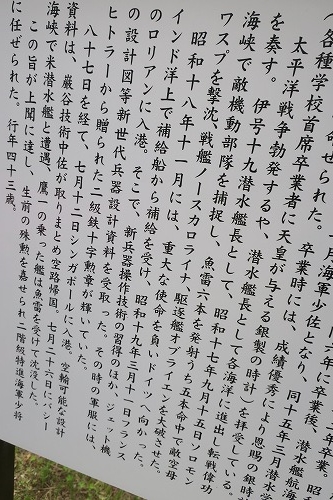 各種学校首席卒業者に天皇が与える銀製の時計)を拝受している。
太平洋戦争勃発するや、潜水艦長として各海洋に進出し転戦偉
を奏す。伊号十九潜水艦長として、昭和十七年九月十五日ソロモン
海峡で敵機動部隊を捕捉し、魚雷六本を発射うち五本命中で敵空母
ワスプを撃沈、戦艦ノースカロライナ、駆逐艦オブライエンを大破させた。
昭和十八年十一月には、重大な使命を負いドイツへ向かった。
インド洋上で補給船から補給を受け、昭和十九年三月十一日フランス
のロリアンに入港。そこで、新兵器操作技術の習得のほか、ジェット機
の設計図等新世代兵器設計資料を受取った。その時の軍服には、
ヒトラーから贈られた二級鉄十字勲章が輝いていた。
八十七日を経て、七月十二日シンガポールに入港。空輸可能な設計
資料は、巌谷技術中佐が取りまとめ空路帰国。七月二十六日にバシー
海峡で米潜水艦と遭遇、鷹一の乗った艦は魚雷を受けて沈没した。
この旨が上聞に達し、生前の殊勲を嘉せられ二階級特進海軍少将
に任ぜられた。行年四十三歳。